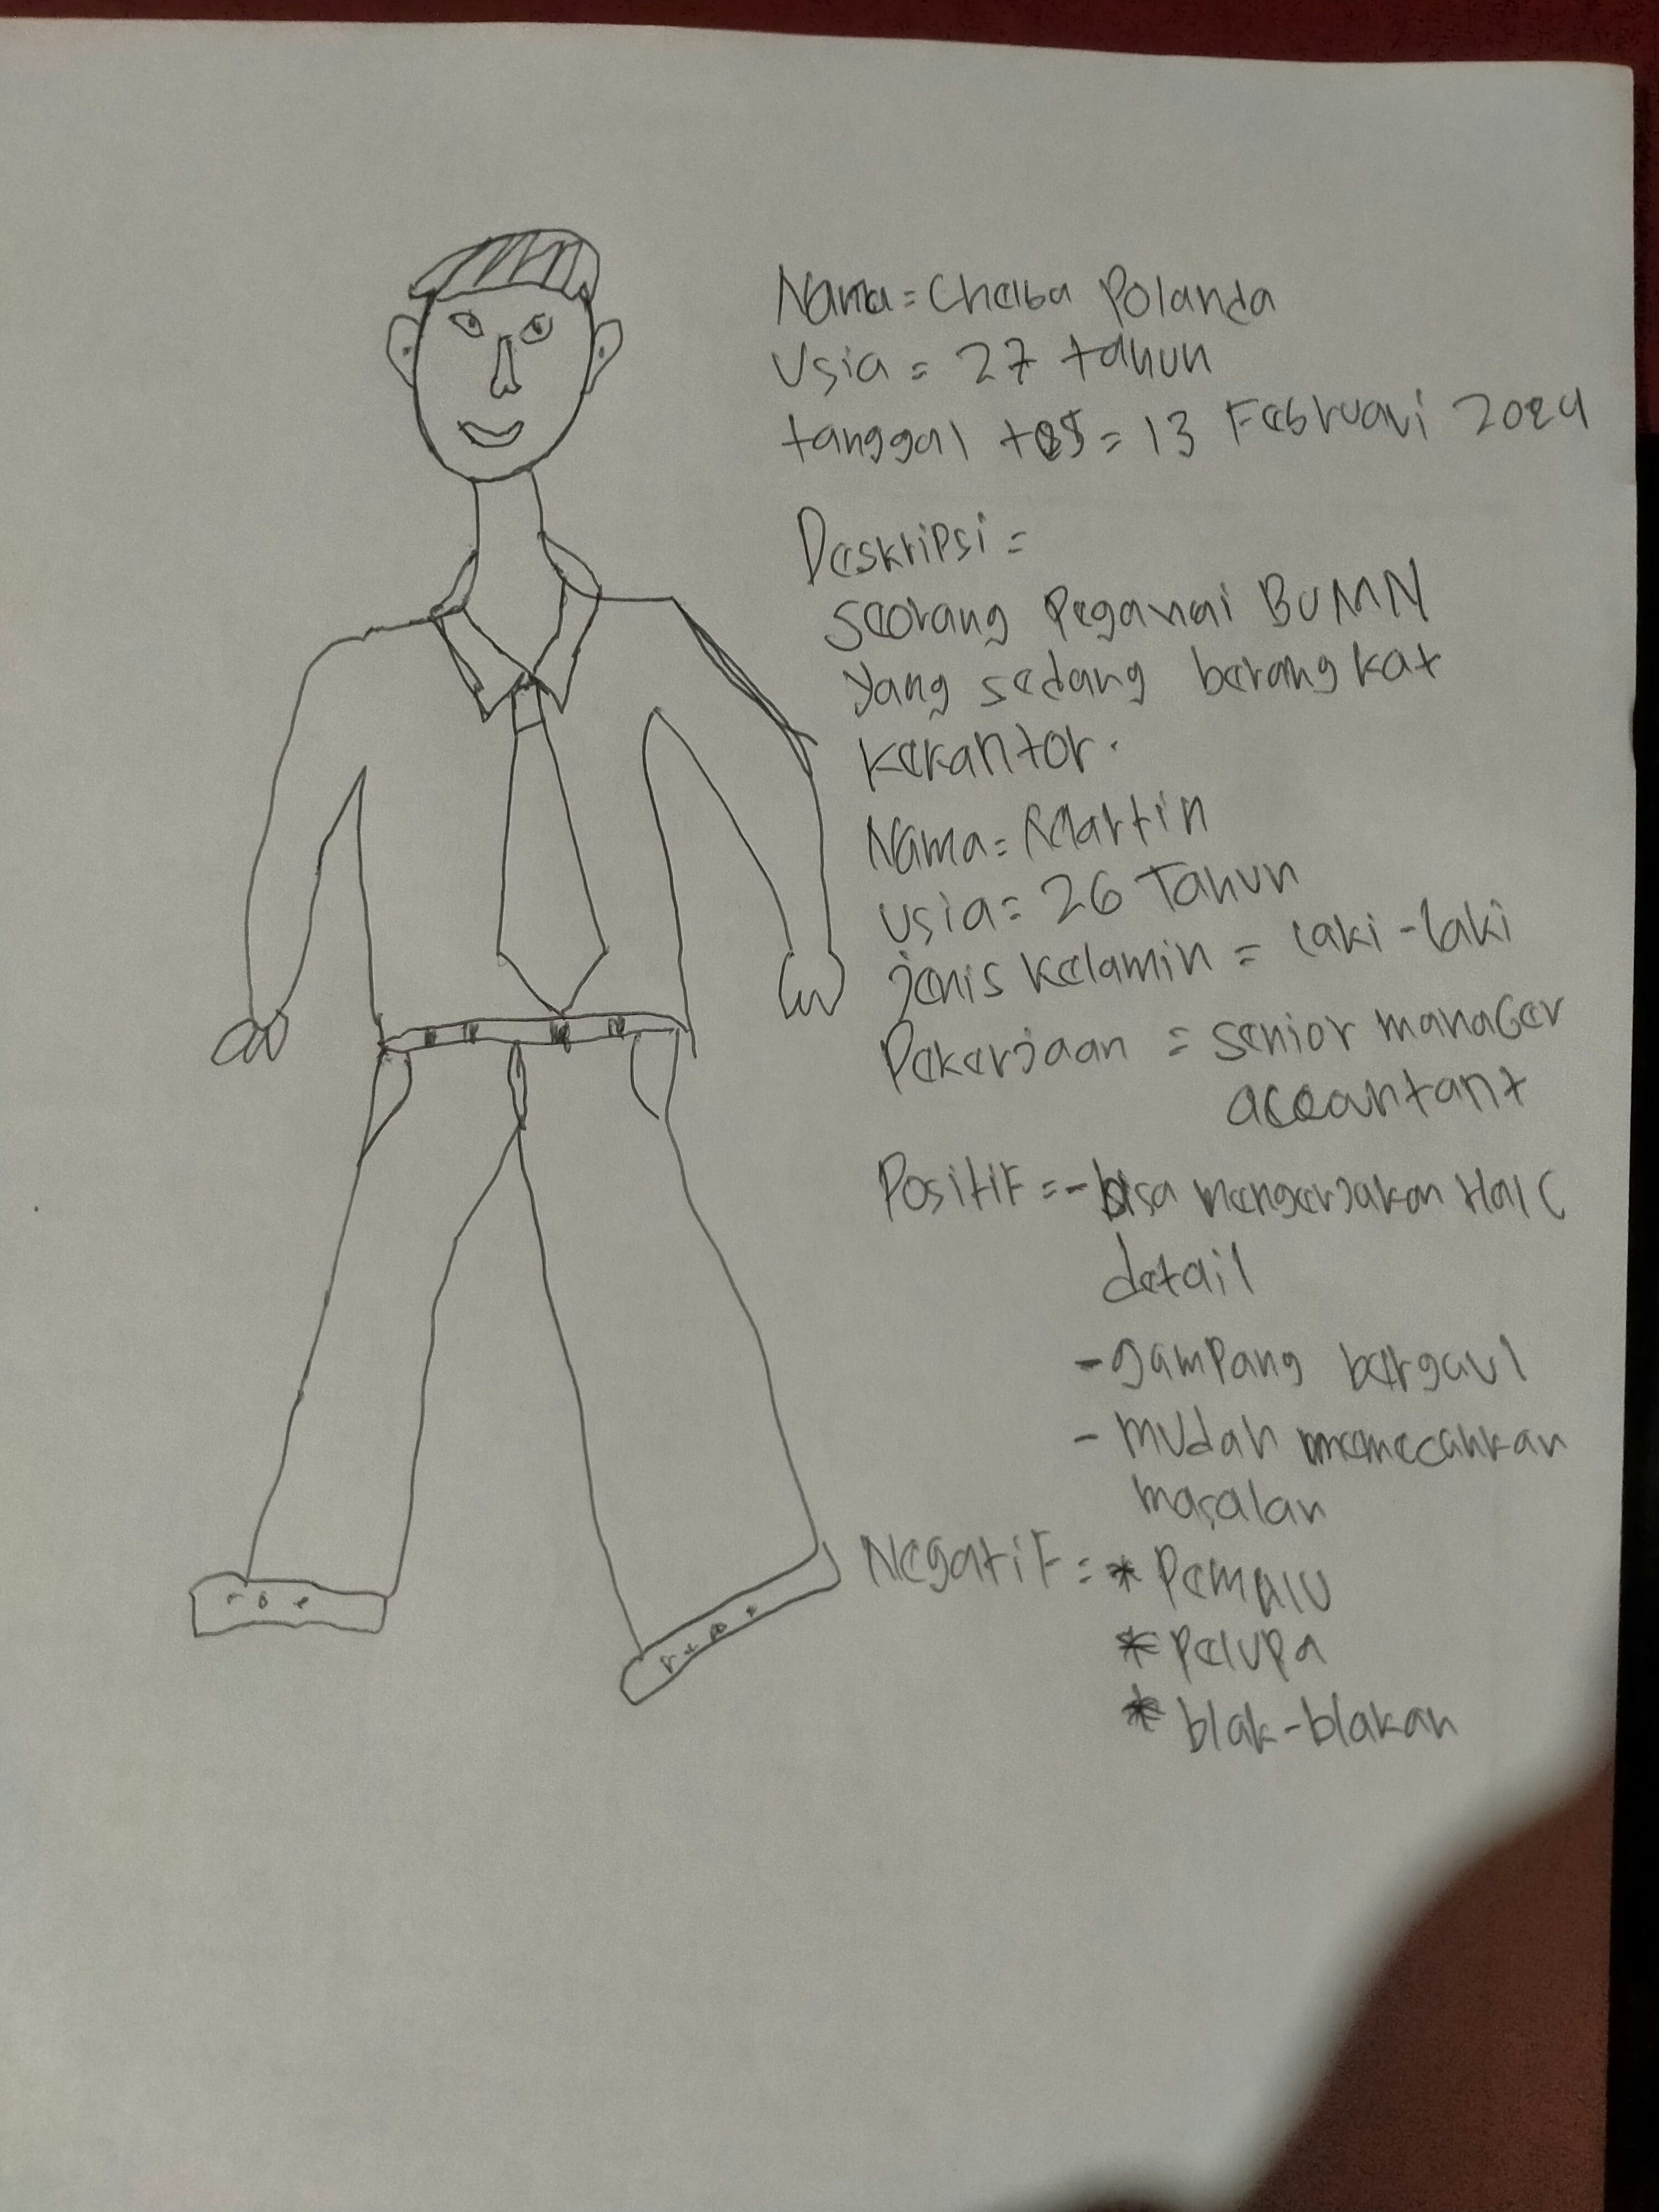 Nama = Chelsa Polanda
Usia = 27 tahun
tanggal tes = 13 Februari 2024
Deskripsi =
Seorang Pegawai BUMN
yang sedang berangkat
kekantor.
Nama = Martin
usia = 26 Tahun
jenis kelamin = laki-laki
Pekerjaan = senior manager
accountant
Positif = - bisa mengerjakan
detail
- gampang bergaul
- mudah memecahkan
masalah
Negatif = * Pemalu
* Pelupa
* blak-blakan